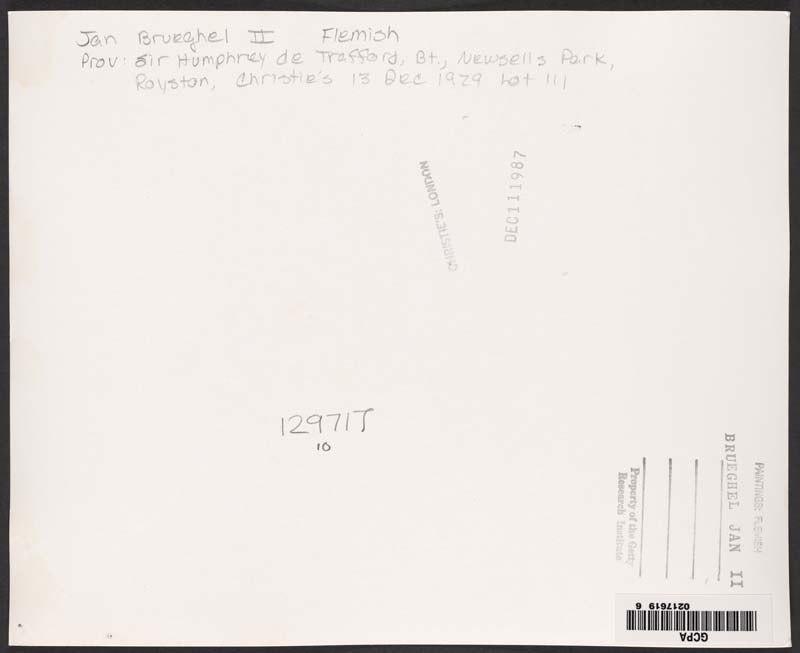 Jan Brueghel II Flemish
Prov: Sir Humphrey de Trafford, Bt., Newsells Park,
Royston, Christie's 13 Dec 1929 Lot 111
CHRISTIE'S: LONDON
DEC 11 1987
12971T
10
PAINTINGS: FLEMISH
BRUEGHEL JAN II
Property of the Getty
Research Institute
GCPA
0217619 6